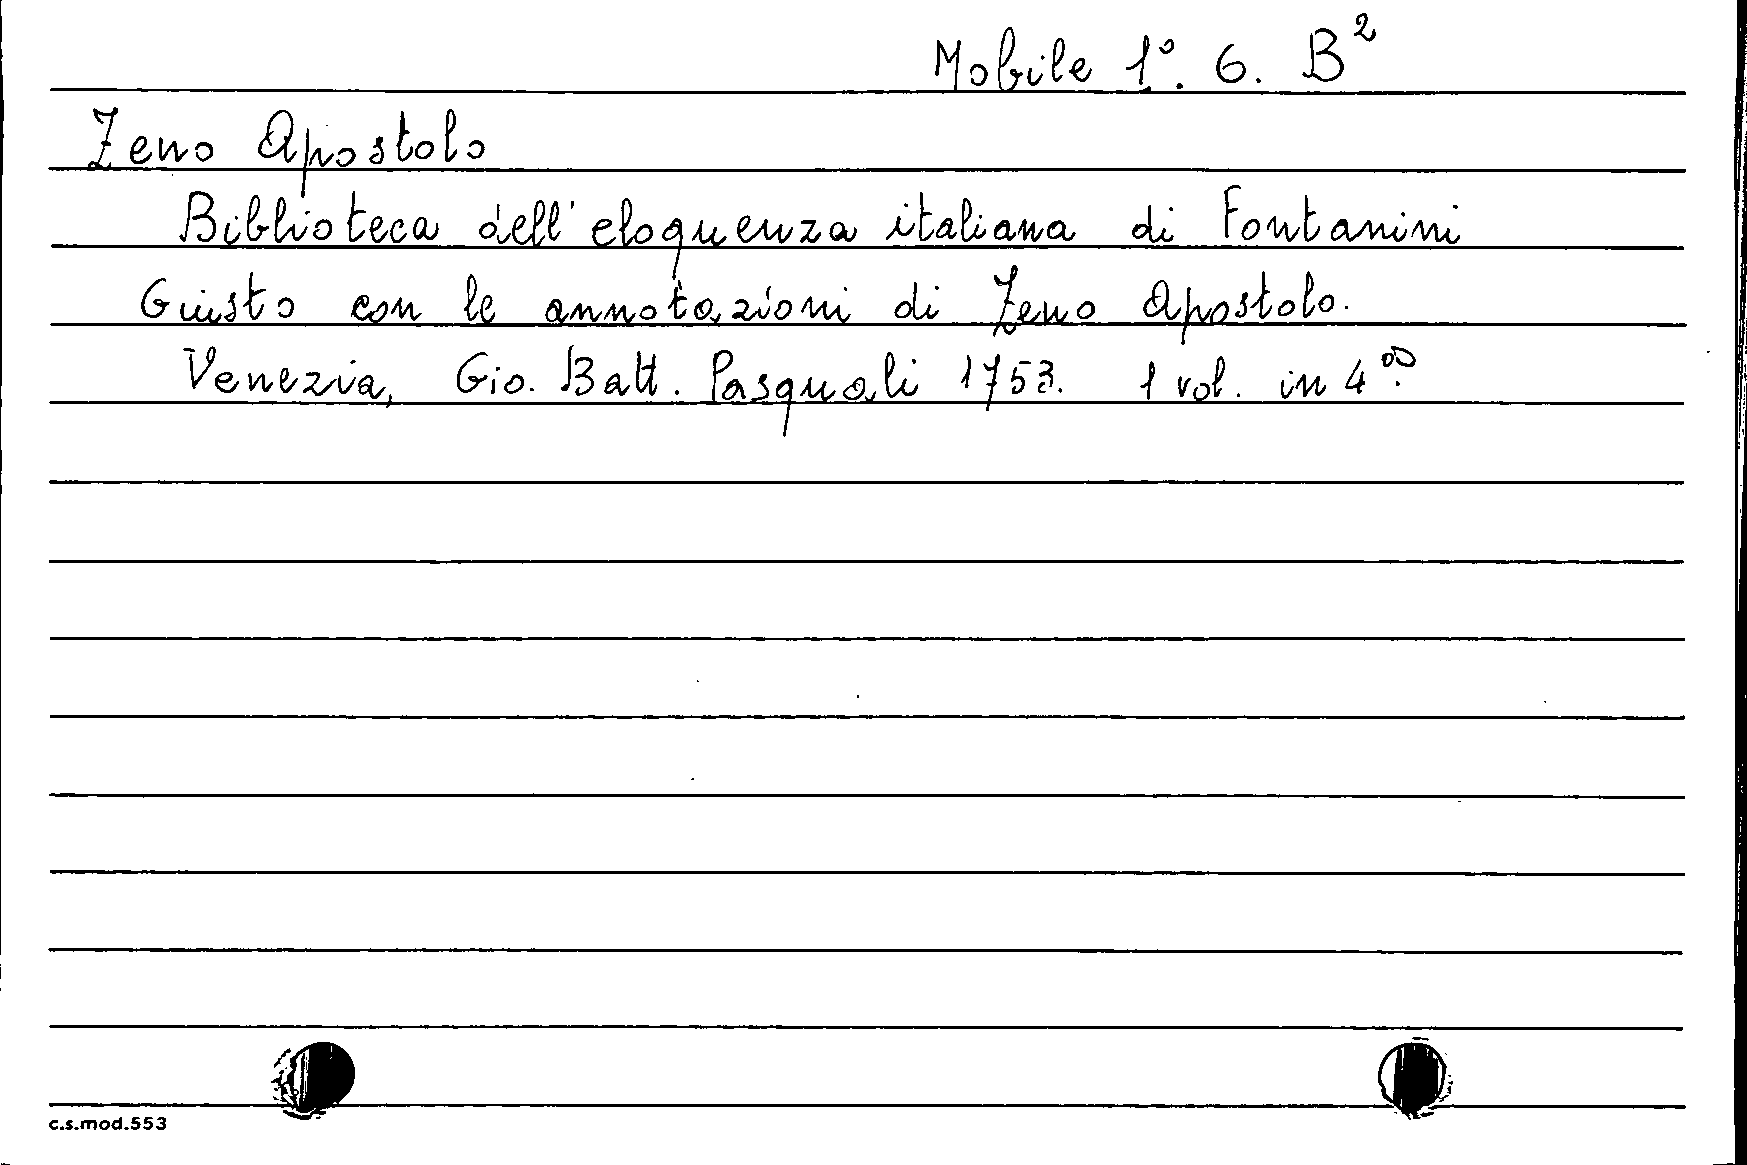 Mobile 1º. 6. B²
Zeno Apostolo
Biblioteca dell'eloquenza italiana di Fontanini
Giusto con le annotazioni di Zeno Apostolo.
Venezia, Gio. Batt. Pasquali 1753. 1 vol. in 4º.
c.s.mod.553